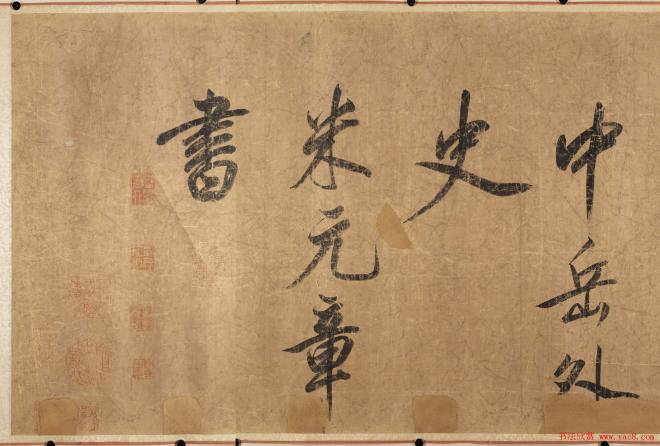 中岳外
史
米元章
書
书法欣赏 www.yac8.com